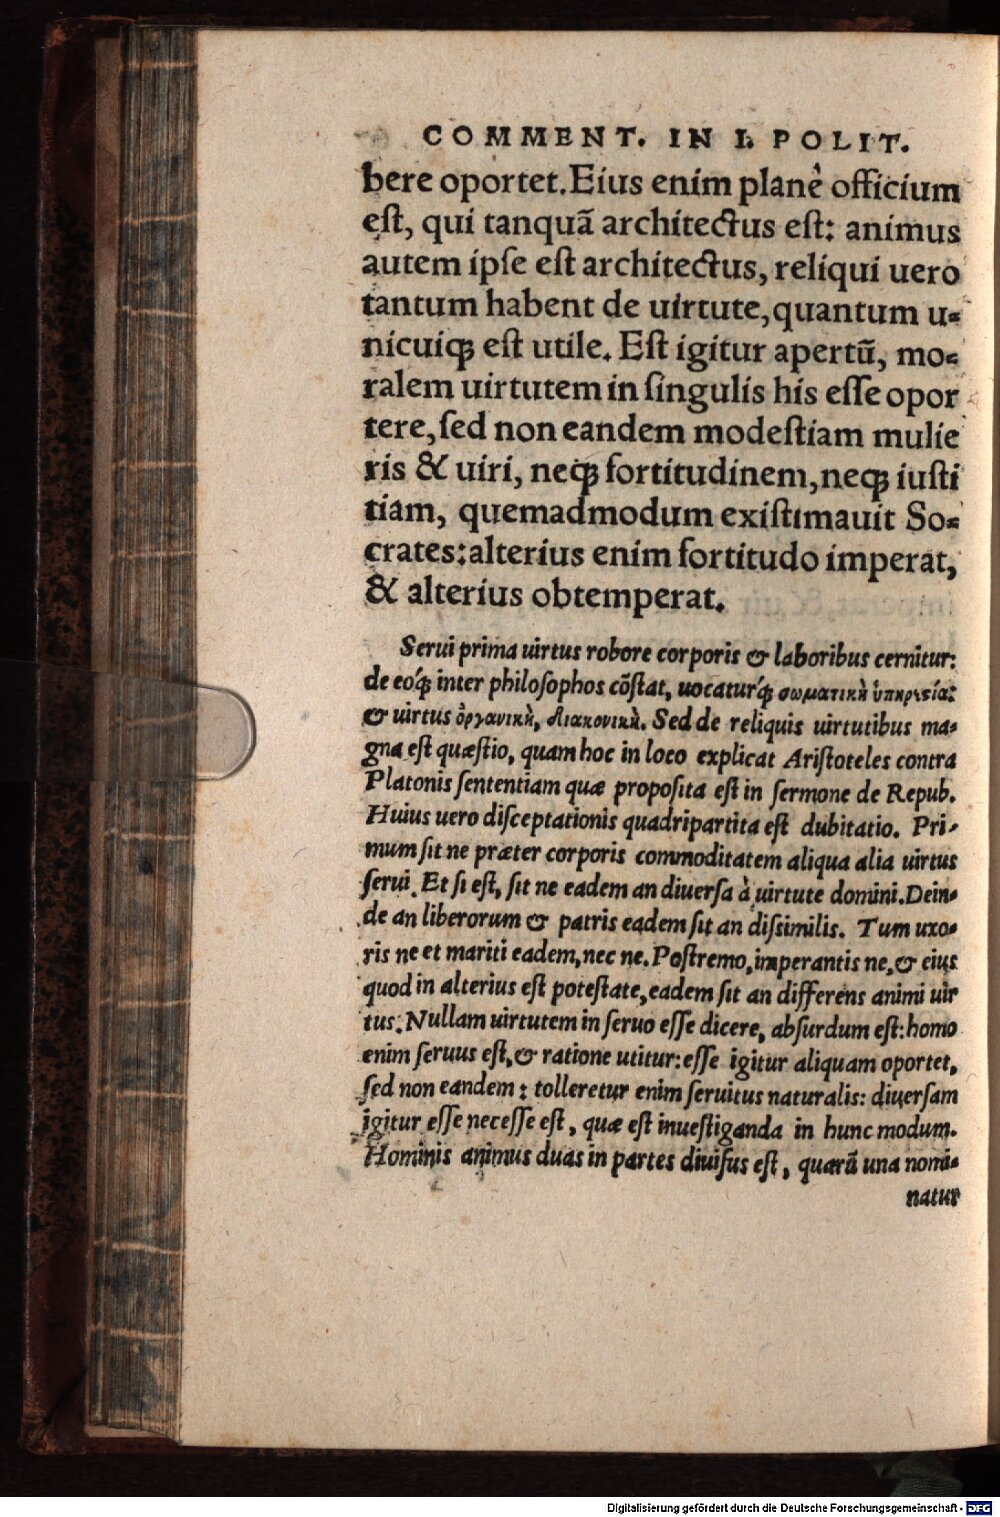 COMMENT. IN I. POLIT.
bere oportet. Eius enim planè officium
est, qui tanquā architectus est: animus
autem ipse est architectus, reliqui uero
tantum habent de uirtute, quantum u-
nicuiq; est utile. Est igitur apertū, mo-
ralem uirtutem in singulis his esse opor
tere, sed non eandem modestiam mulie
ris & uiri, neq; fortitudinem, neq; iusti
tiam, quemadmodum existimauit So-
crates: alterius enim fortitudo imperat,
& alterius obtemperat.
Serui prima uirtus robore corporis & laboribus cernitur:
de eoq́; inter philosophos cōstat, uocaturq́; σωματικὴ ὑπηρεσία:
& uirtus ὀργανικὴ, διακονικὴ. Sed de reliquis uirtutibus ma-
gna est quæstio, quam hoc in loco explicat Aristoteles contra
Platonis sententiam quæ proposita est in sermone de Repub.
Huius uero disceptationis quadripartita est dubitatio. Pri-
mum sit ne præter corporis commoditatem aliqua alia uirtus
serui. Et si est, sit ne eadem an diuersa à uirtute domini. Dein-
de an liberorum & patris eadem sit an dissimilis. Tum uxo-
ris ne et mariti eadem, nec ne. Postremo, imperantis ne, & eius
quod in alterius est potestate, eadem sit an differens animi uir
tus. Nullam uirtutem in seruo esse dicere, absurdum est: homo
enim seruus est, & ratione utitur: esse igitur aliquam oportet,
sed non eandem: tolleretur enim seruitus naturalis: diuersam
igitur esse necesse est, quæ est inuestiganda in hunc modum.
Hominis animus duas in partes diuisus est, quarū una nomi-
natur
Digitalisierung gefördert durch die Deutsche Forschungsgemeinschaft - DFG